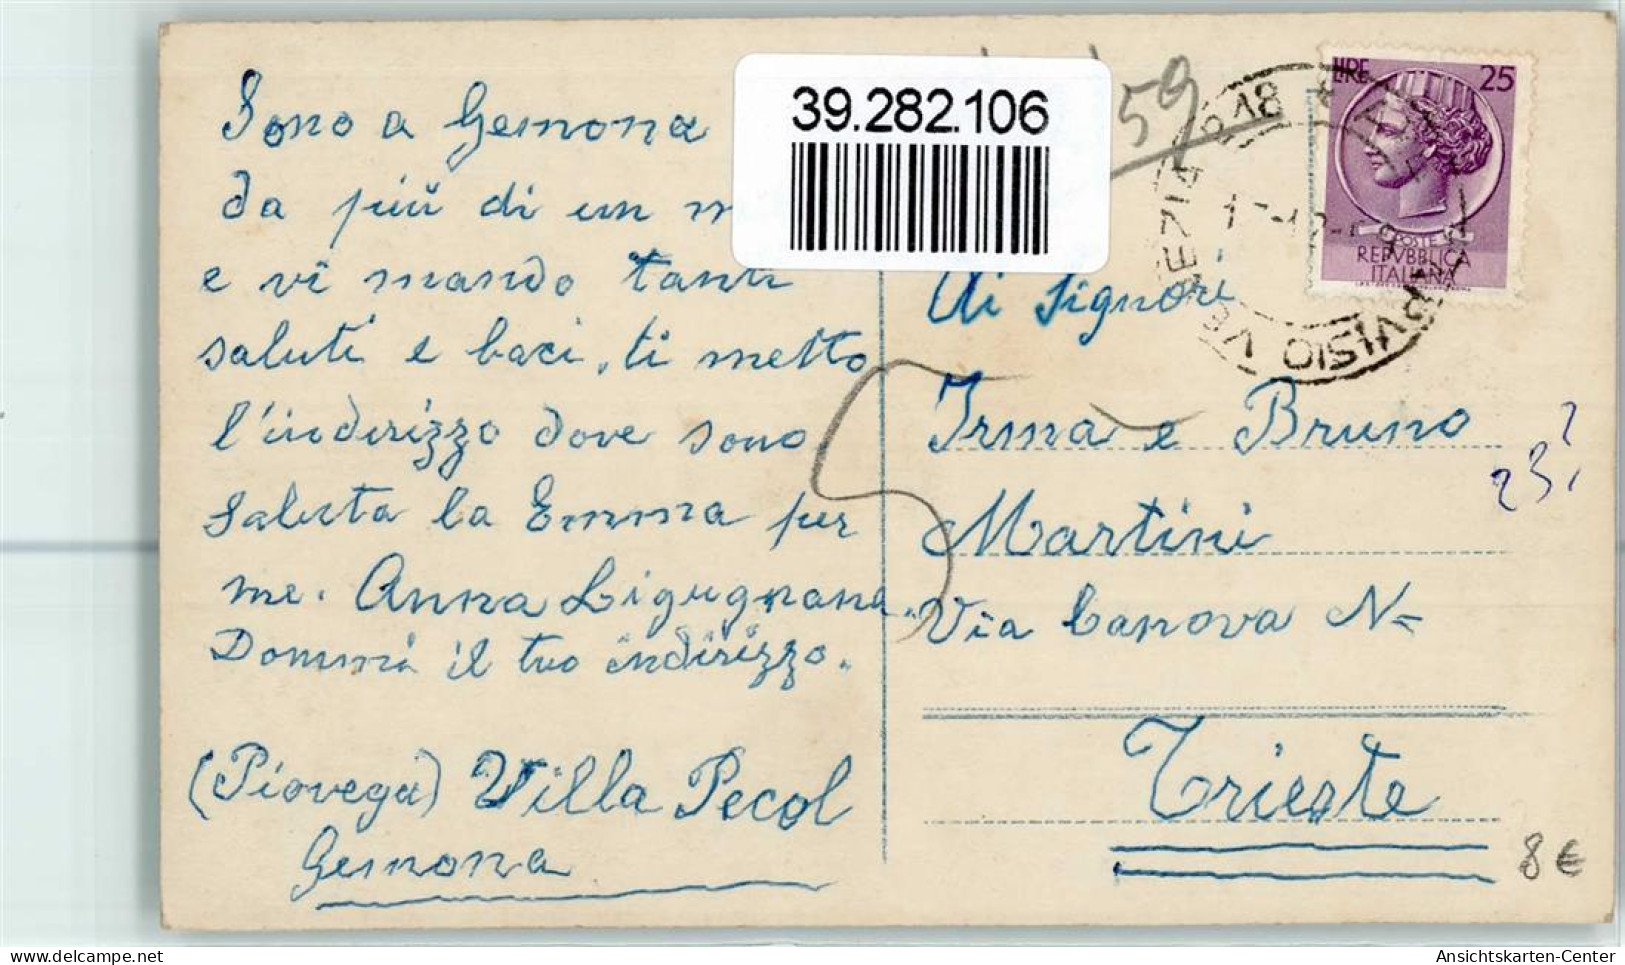 Sono a Gemona
da più di un
e vi mando tanti
saluti e baci, ti metto
l'inderizzo dove sono
saluta la Emma per
me. Anna Ligugnana.
Dommi il tuo indirizzo.
(Piovega) Villa Pecol
Gemona
39.282.106
59
LIRE 25
POSTE
REPVBBLICA
ITALIANA
TARVISIO VENEZIA
Ai Signori
Irma e Bruno
Martini
Via Canova N=
Trieste
5
23
8 €
Ansichtskarten-Center